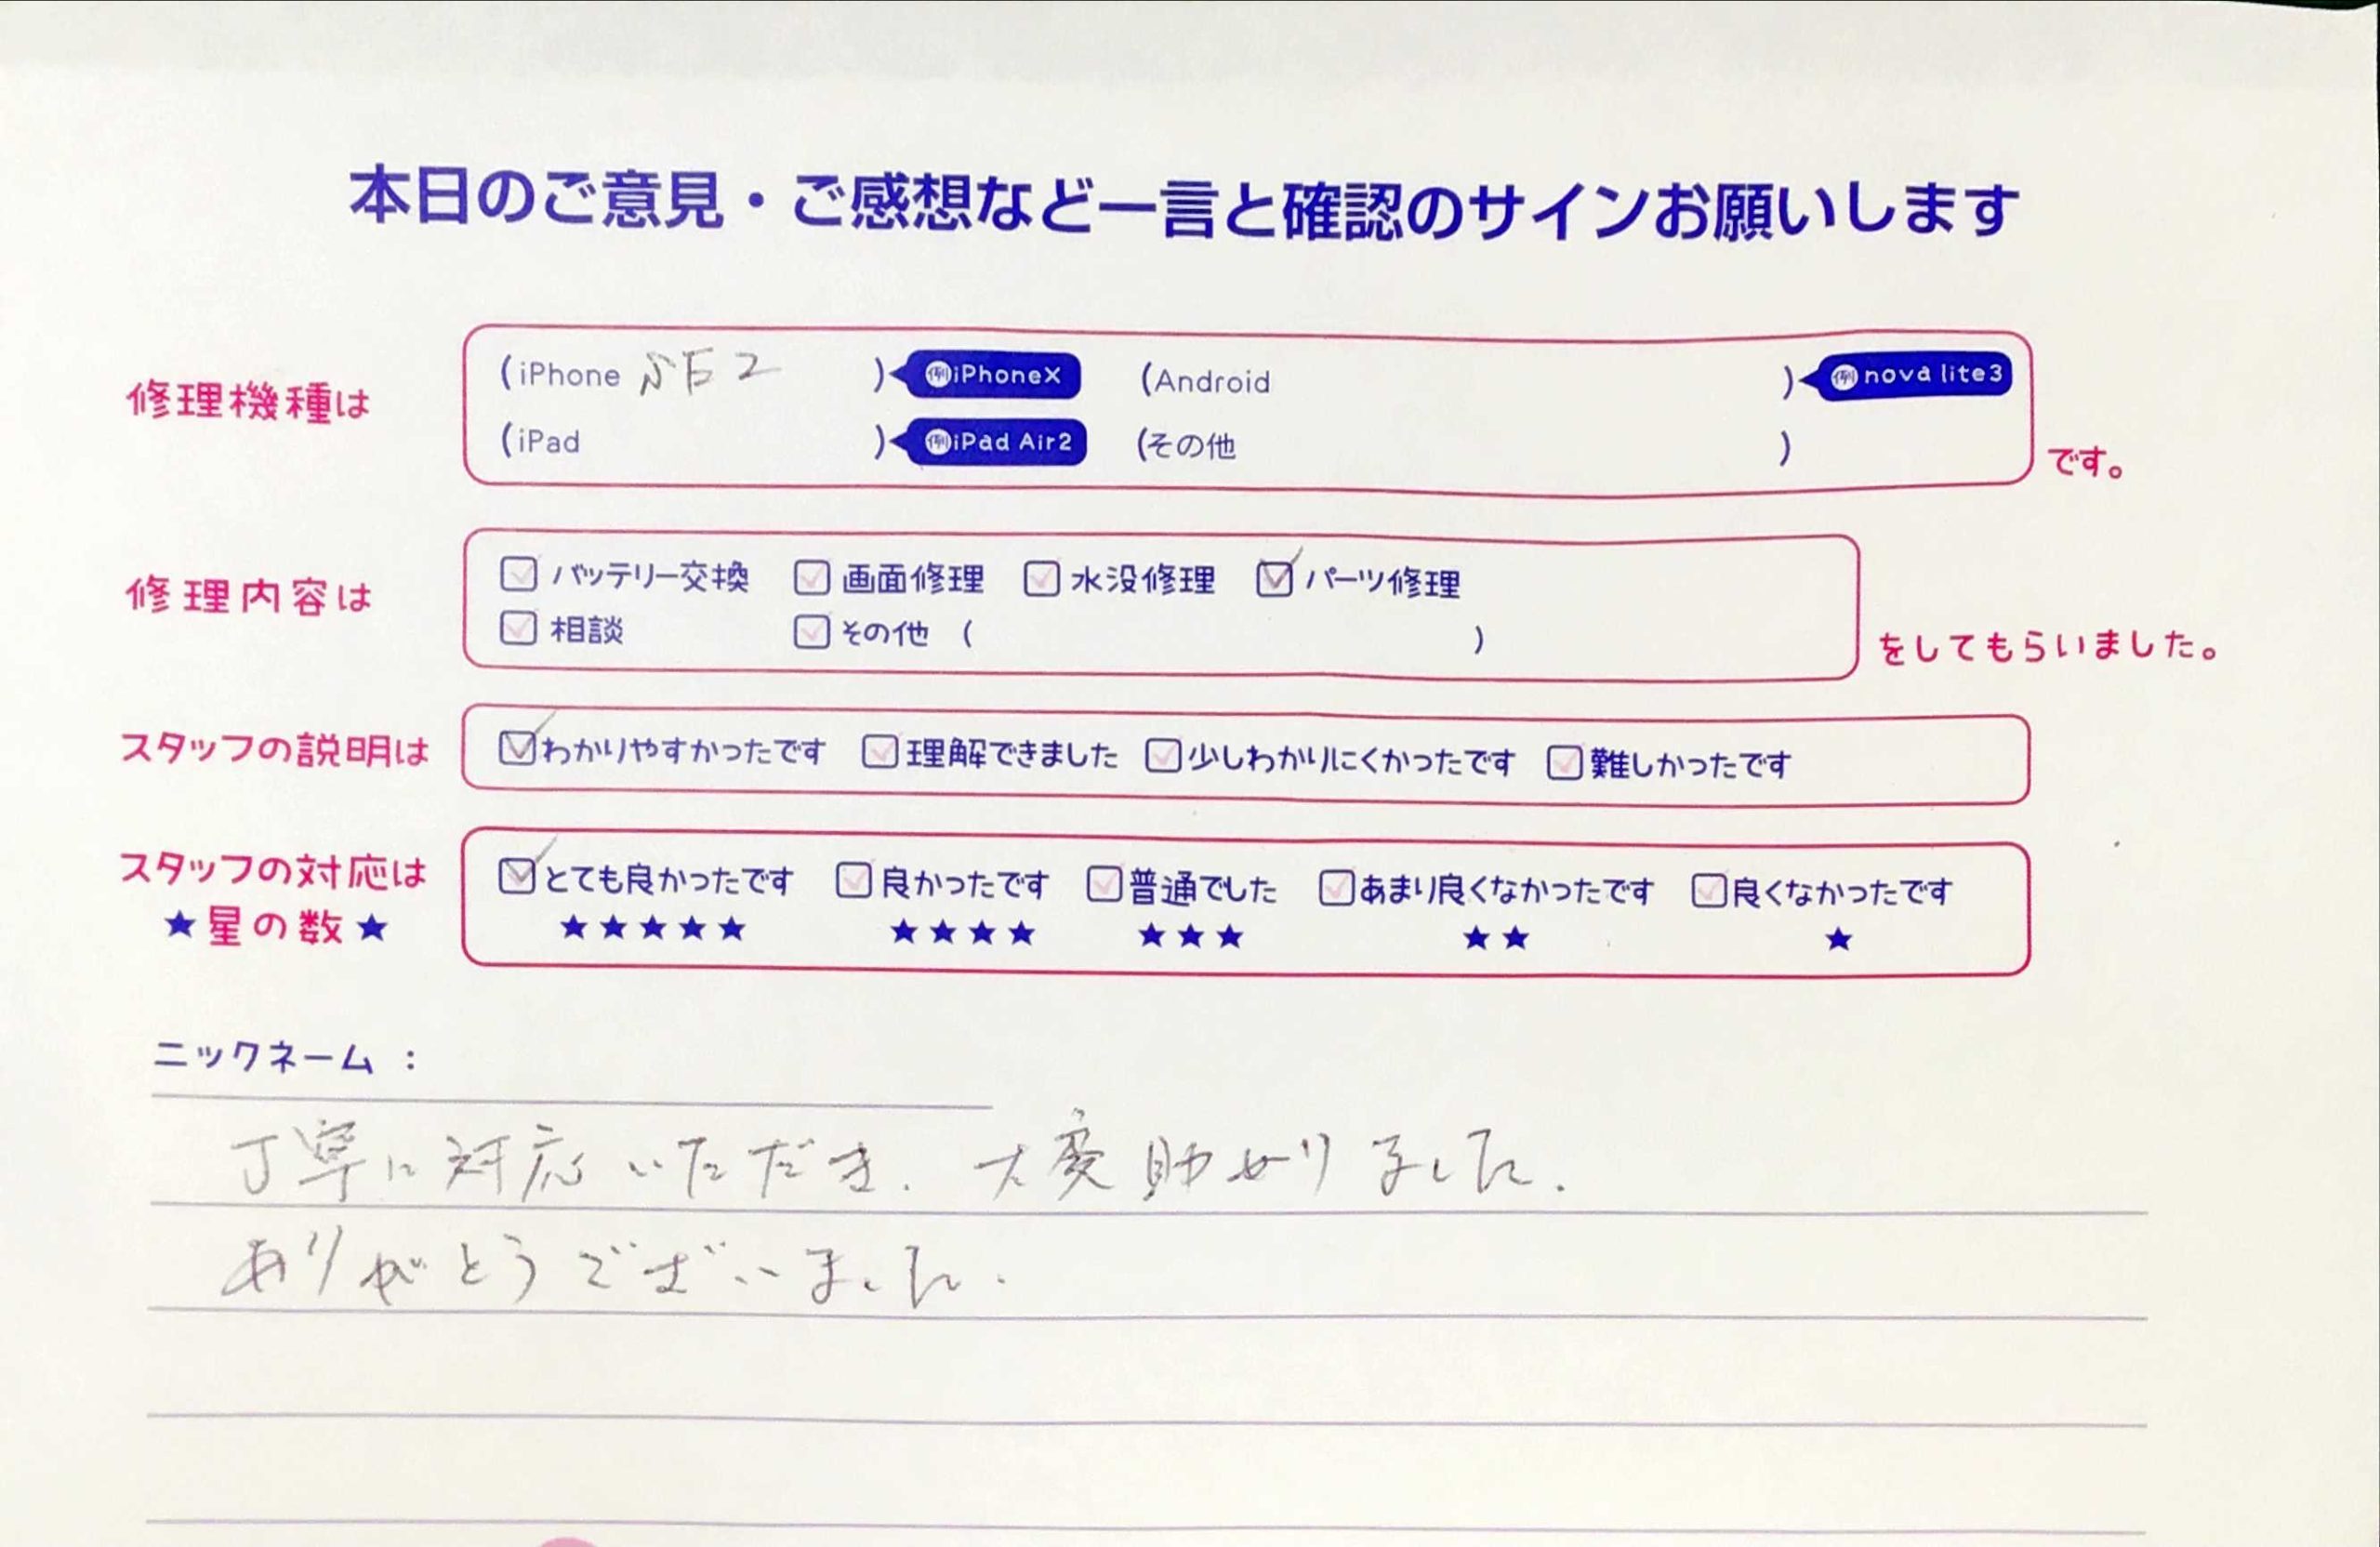 本日のご意見・ご感想など一言と確認のサインお願いします
修理機種は
(iPhone SE2 ) 例iPhoneX (Android ) 例nova lite3
(iPad ) 例iPad Air2 (その他 )
です。
修理内容は
バッテリー交換 画面修理 水没修理 パーツ修理
相談 その他 ( )
をしてもらいました。
スタッフの説明は
わかりやすかったです 理解できました 少しわかりにくかったです 難しかったです
スタッフの対応は
★星の数★
とても良かったです 良かったです 普通でした あまり良くなかったです 良くなかったです
★★★★★ ★★★★ ★★★ ★★ ★
ニックネーム :
丁寧に対応いただき、大変助かりました.
ありがとうございました.